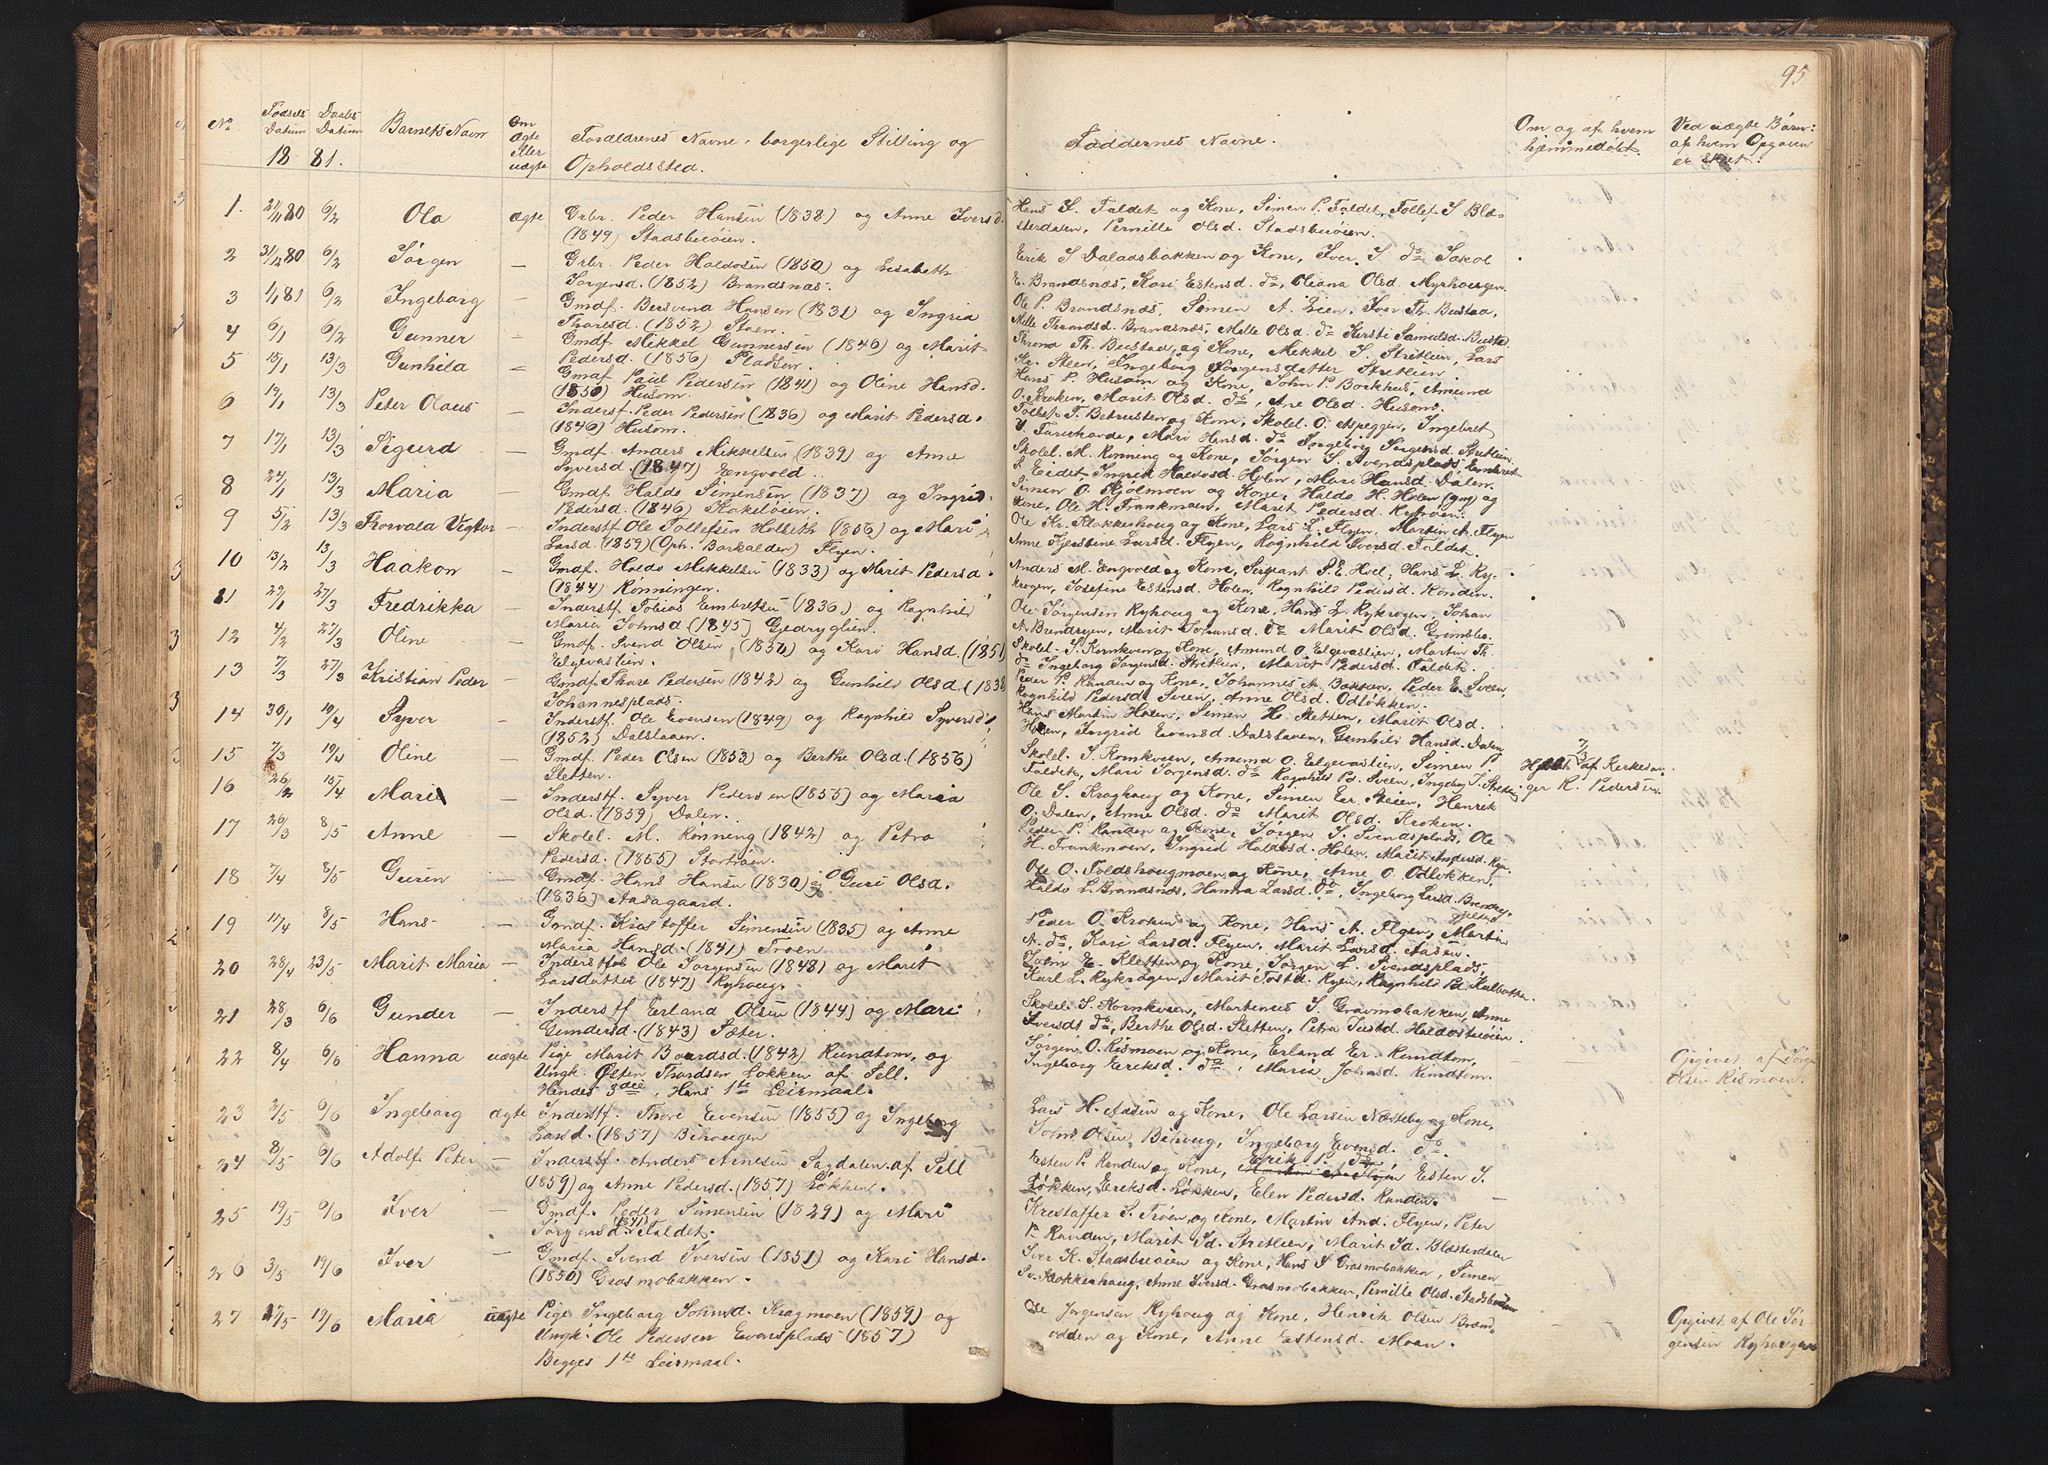 95
No.
Fødsels Datum
Daabs Datum
18 81.
Barnets Navn
Om ægte eller uægte
Forældrenes Navne, borgerlige Stilling og
Opholdssted.
Faddernes Navne.
Om og af hvem
hjemmedøbt.
Ved uægte Børn:
af hvem Opgaven
er skeet.
1. 80 6/2 Ola ægte Grbr. Peder Hansen (1838) og Anne Iversd.
(1849) Stadsbuøien.
Hans S. Faldet og Kone, Simen P. Faldet, Tollef S Blæ-
sterdalen, Pernille Olsd. Stadsbuøien.
2 31/12 80 6/2 Jørgen — Grbr. Peder Haldosen (1850) og Lisabeth
Jørgensd. (1852) Brandsnæs.
Erik S Daladsbakken og Kone, Iver S. do Jakob
E. Brandsnæs, Kari Estensd. do, Oliana Olsd. Myrhougen.
3 1/1 81 6/2 Ingeborg — Gmdf. Bersvend Hansen (1831) og Ingrid
Thoresd. (1852) Stoen.
Ole P. Brandsnæs, Simen A. Lien, Iver Th. Bustad,
Mille Throndsd. Brandsnæs, Mille Olsd. do Kersti Samuelsd. Bustad.
4 6/1 6/2 Gunner — Gmdf. Mikkel Gunnersen (1846) og Marit
Pedersd. (1856) Pladsen.
Thrond Th. Bustad og Kone, Mikkel S. Stretlien, Lars
Kr. Steen, Ingeborg Jørgensdatter Stretlien.
5 15/1 13/3 Gunhild — Gmdf. Paul Pedersen (1841) og Oline Hansd.
(1850) Husom.
Hans P. Husom og Kone, John P. Borkhus, Amund
O. Kroken, Marit Olsd. do, Ane Olsd. Husom.
6 13/3 Peter Olaus — Inderstf. Peder Pedersen (1836) og Marit Pedersd.
(1846) Husom.
Tollef T. og Kone, Skolel. O. Aspeggen, Ingebret
Mari Hansd. do Ingeborg Jørgensd. Stretlien.
7 17/1 13/3 Sigurd — Gmdf. Anders Mikkelsen (1839) og Anne
Syversd. (1847) Engvold.
Skolel. M. Rønning og Kone, Jørgen S. Svendsplads, Embret
S. Eidet, Ingrid Haldosd. Holen, Mari Hansd. Dalen.
8 24/1 13/3 Maria — Gmdf. Haldo Simensen (1837) og Ingrid
Pedersd. (1846)
Simen O. Hjelmoen og Kone, Haldo H. Holen (gm) og
Kone, Ole H. Frankmoen, Maret Pedersd.
9 5/2 13/3 Thorvald Vigtor — Inderstf. Ole Tollefsen Holleth (1856) og Mari
Larsd. (1859) (Oph. Borkalden) Flyen.
Ole Kr. Klokkerhoug og Kone, Lars L. Flyen, Martin A. Flyen
Anne Kjerstine Larsd. Flyen, Ragnhild Iversd. Faldet.
10 13/2 13/3 Haakon — Gmdf. Haldo Mikkelsen (1833) og Marit Pedersd.
(1844) Rønningen.
Anders M. Engvold og Kone, Sergeant S. E. Hoel, Hans L. Ry-
krogen, Josefine Estensd. Holen, Ragnhild Pedersd. Rønden.
11 29/1 27/3 Fredrikka — Inderstf. Tobias Embretsen (1836) og Ragnhild
Maria Johnsd. (1845)
Ole Jørgensen Ryhoug og Kone, Hans L. Rykrogen, Johan
N. Brendryen, Marit Johansd. do Marit Olsd. Grimsbo.
12 4/2 27/3 Oline — Gmdf. Svend Olsen (1850) og Kari Hansd. (1851)
Elgevaslien.
Skolel. S. Kornkveen og Kone, Amund O. Elgevaslien, Martin Th.
do Ingeborg Jørgensd. Stretlien, Marit Pedersd. Faldet.
13 7/3 27/3 Kristian Peder — Gmdf. Thore Pedersen (1842) og Gunhild Olsd. (1838)
Johannesplads.
Peder P. Randen og Kone, Johannes A. Bakken, Peder E. Sveen,
Ragnhild Pedersd. Sveen, Anne Olsd. Odløkken.
14 30/1 10/4 Syver — Inderstf. Ole Evensen (1849) og Ragnhild Syversd.
(1852) Dalslaaen.
Hans Martin Holen, Simen H. Sletten, Marit Olsd.
Holen, Ingrid Evensd. Dalslaaen, Gunhild Hansd. Dalen.
15 7/3 10/4 Oline — Gmdf. Peder Olsen (1853) og Berthe Olsd. (1856)
Sletten.
Skolel. S. Kornkveen, Amund O. Elgevaslien, Simen P.
Faldet, Mari Jørgensd. do Ragnhild Pd. Sveen, Ingeb. J.
7/3 af Kirkesan-
ger K. Pedersen.
16 26/2 15/4 Mari — Inderstf. Syver Pedersen (1855) og Maria
Olsd. (1859) Dalen.
Ole S. Kroghoug og Kone, Simen Er. Steien, Henrik
O. Dalen, Anne Olsd. do Marit Olsd. Kroken.
17 26/3 8/5 Anne — Skolel. M. Rønning (1842) og Petra
Pedersd. (1855) Stortrøen.
Peder P. Randen og Kone, Jørgen S. Svendsplads, Ole
H. Frankmoen, Ingrid Haldosd. Holen, Marit Andersd.
18 7/4 8/5 Guren — Gmdf. Hans Hansen (1830) og Guri Olsd.
(1836) Aasagaard.
Ole O. Foldshougmoen og Kone, Arne O. Odløkken,
Haldo L. Brandsnæs, Hanna Larsd. do, Ingeborg Larsd.
19 17/4 8/5 Hans — Gmdf. Kristoffer Simensen (1835) og Anne
Maria Hansd. (1841) Troen.
Peder O. Kroken og Kone, Hans A. Flyen, Martin
A. do, Kari Larsd. Flyen, Marit Larsd. Aasen.
20 28/4 23/5 Marit Maria — Inderstfol Ole Jørgensen (1848) og Marit
Larsdatter (1847) Ryhoug.
John E. Kletten og Kone, Jørgen L. Svendsplads,
Karl L. Rykrogen, Marit Tostd. Ryen, Ragnhild Pd.
21 28/3 6/6 Gunder — Inderstf Erland Olsen (1844) og Mari
Gundersd. (1843) Sæter.
Skolel. S. Kornkveen, Martines S. Grasmobakken, Anne
Iversdt do, Berthe Olsd. Sletten, Petra Justd. Haldosbuøien.
22 8/4 6/6 Hanna uægte Pige Marit Baardsd. (1842) Rundtom, og
Ungk. Østen Thordsen Løkken af Sell.
Hendes 3die, Hans 1te Leiermaal.
Jørgen O. Rismoen og Kone, Erland Er. Rundtom,
Ingeborg Eriksd. do, Maria Johnsd. Rundtom.
Opgivet af Jørgen
Olsen Rismoen.
23 2/5 6/6 Ingeborg ægte Inderstf. Thore Evensen (1855) og Ingeborg
Larsd. (1857) Bihougen
Lars H. Aasen og Kone, Ole Larsen Næsteby og Kone,
John Olsen Bihoug, Ingeborg Evensd. do.
24 8/5 6/6 Adolf Peter — Inderstf. Anders Arnesen Sagdalen af Sell
(1859) og Anne Pedersd. (1857) Løkken.
Esten P. Randen og Kone, Erik P. do Esten S.
Løkken, Eriksd. Løkken, Elen Pedersd. Randen.
25 19/5 6/6 Iver — Gmdf. Peder Simensen (1829) og Mari
Jørgensd. (1841) Faldet.
Kristoffer S. Trøen og Kone, Martin And. Flyen, Peter
P. Randen, Marit Jd. Stretlien, Marit Jd. Blæsterdalen
26 3/5 19/6 Iver — Gmdf. Svend Iversen (1851) og Kari Hansd.
(1850) Grasmobakken.
Iver K. Stadsbuøien og Kone, Hans S Grasmobakken, Simen
Sv. Klokkerhoug, Anne Iversd. Grasmobakken, Pernille Olsd. Stadsbuøien
27 27/5 19/6 Maria uægte Pige Ingeborg Johnsd. Kragmoen (1859) og
Ungk. Ole Pedersen Evensplads (1857)
Begges 1te Leiermaal.
Ole Jørgensen Ryhoug og Kone, Henrik Olsen Brand-
odden og Kone, Anne Estensd. Moan.
Opgivet af Ole Jør-
gensen Ryhougen